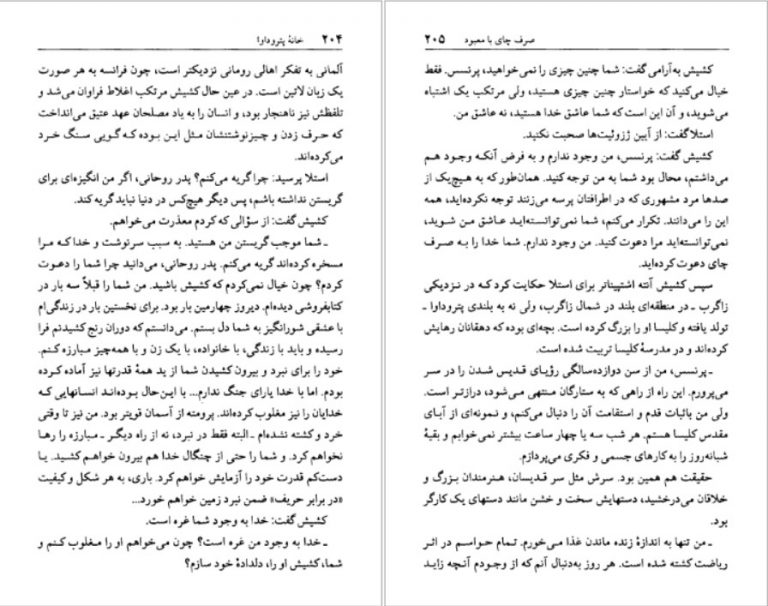 ۲۰۴ خانهٔ پتروداوا
آلمانی به تفکر اهالی رومانی نزدیکتر است، چون فرانسه به هر صورت
یک زبان لاتین است. در عین حال کشیش مرتکب اغلاط فراوان می‌شد و
تلفظش نیز ناهنجار بود، و انسان را به یاد مصلحان عهد عتیق می‌انداخت
که حرف زدن و چیزنوشتنشان مثل این بوده که گویی سنگ خرد
می‌کرده‌اند.
استلا پرسید: چرا گریه می‌کنم؟ پدر روحانی، اگر من انگیزه‌ای برای
گریستن نداشته باشم، پس دیگر هیچ‌کس در دنیا نباید گریه کند.
کشیش گفت: از سؤالی که کردم معذرت می‌خواهم.
ـ شما موجب گریستن من هستید. به سبب سرنوشت و خدا که مرا
مسخره کرده‌اند گریه می‌کنم. پدر روحانی، می‌دانید چرا شما را دعوت
کردم؟ چون خیال نمی‌کردم که کشیش باشید. من شما را قبلاً سه بار در
کتابفروشی دیده‌ام. دیروز چهارمین بار بود. برای نخستین بار در زندگی‌ام
با عشقی شورانگیز به شما دل بستم. می‌دانستم که دوران رنج کشیدنم فرا
رسیده و باید با زندگی، با خانواده، با یک زن و با همه‌چیز مبارزه کنم.
خود را برای نبرد و بیرون کشیدن شما از ید همهٔ قدرتها نیز آماده کرده
بودم. اما با خدا یارای جنگ ندارم... با این‌حال بوده‌اند انسانهایی که
خدایان را نیز مغلوب کرده‌اند. پرومته از آسمان قویتر بود. من نیز تا وقتی
خرد و کشته نشده‌ام ـ البته فقط در نبرد، نه از راه دیگر ـ مبارزه را رها
نخواهم کرد. و شما را حتی از چنگال خدا هم بیرون خواهم کشید. یا
دست‌کم قدرت خود را آزمایش خواهم کرد. باری، به هر شکل و کیفیت
«در برابر حریف» ضمن نبرد زمین خواهم خورد...
کشیش گفت: خدا به وجود شما غره است.
ـ خدا به وجود من غره است؟ چون می‌خواهم او را مغلوب کنم و
شما، کشیش او را، دلدادهٔ خود سازم؟
صرف چای با معبود ۲۰۵
کشیش به‌آرامی گفت: شما چنین چیزی را نمی‌خواهید، پرنسس. فقط
خیال می‌کنید که خواستار چنین چیزی هستید، ولی مرتکب یک اشتباه
می‌شوید، و آن این است که شما عاشق خدا هستید، نه عاشق من.
استلا گفت: از آیین ژزوئیت‌ها صحبت نکنید.
کشیش گفت: پرنسس، من وجود ندارم و به فرض آنکه وجود هم
می‌داشتم، محال بود شما به من توجه کنید. همان‌طور که به هیچ‌یک از
صدها مرد مشهوری که در اطرافتان پرسه می‌زنند توجه نکرده‌اید، همه
این را می‌دانند. تکرار می‌کنم، شما نمی‌توانسته‌اید عاشق من شوید،
نمی‌توانسته‌اید مرا دعوت کنید. من وجود ندارم. شما خدا را به صرف
چای دعوت کرده‌اید.
سپس کشیش آنته اشتپیناتر برای استلا حکایت کرد که در نزدیکی
زاگرب ـ در منطقه‌ای بلند در شمال زاگرب، ولی نه به بلندی پتروداوا ـ
تولد یافته و کلیسا او را بزرگ کرده است. بچه‌ای بوده که دهقانان رهایش
کرده‌اند و در مدرسهٔ کلیسا تربیت شده است.
ـ پرنسس، من از سن دوازده‌سالگی رؤیای قدیس شدن را در سر
می‌پرورم. این راه از راهی که به ستارگان منتهی می‌شود، درازتر است.
ولی من باثبات قدم و استقامت آن را دنبال می‌کنم، و نمونه‌ای از آبای
مقدس کلیسا هستم. هر شب سه یا چهار ساعت بیشتر نمی‌خوابم و بقیهٔ
شبانه‌روز را به کارهای جسمی و فکری می‌پردازم.
حقیقت هم همین بود. سرش مثل سر قدیسان، هنرمندان بزرگ و
خلاقان می‌درخشید، دستهایش سخت و خشن مانند دستهای یک کارگر
بود.
ـ من تنها به اندازهٔ زنده ماندن غذا می‌خورم. تمام حواسم در اثر
ریاضت کشته شده است. هر روز به‌دنبال آنم که از وجودم آنچه زاید